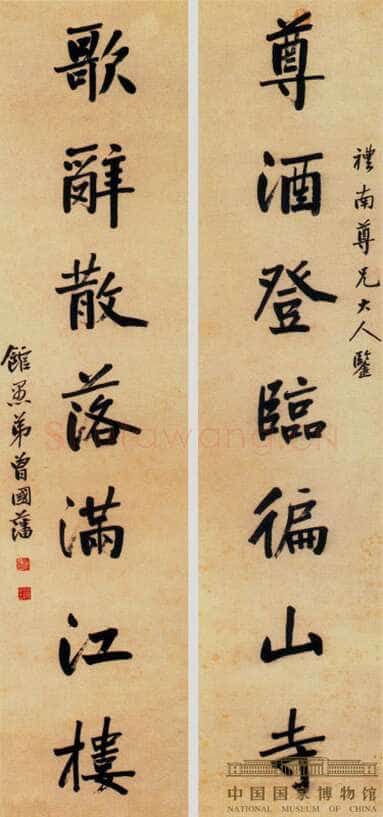 禮南尊兄大人鑒
尊酒登臨徧山寺
歌辭散落滿江樓
館愚弟曾國藩
中国国家博物馆
NATIONAL MUSEUM OF CHINA